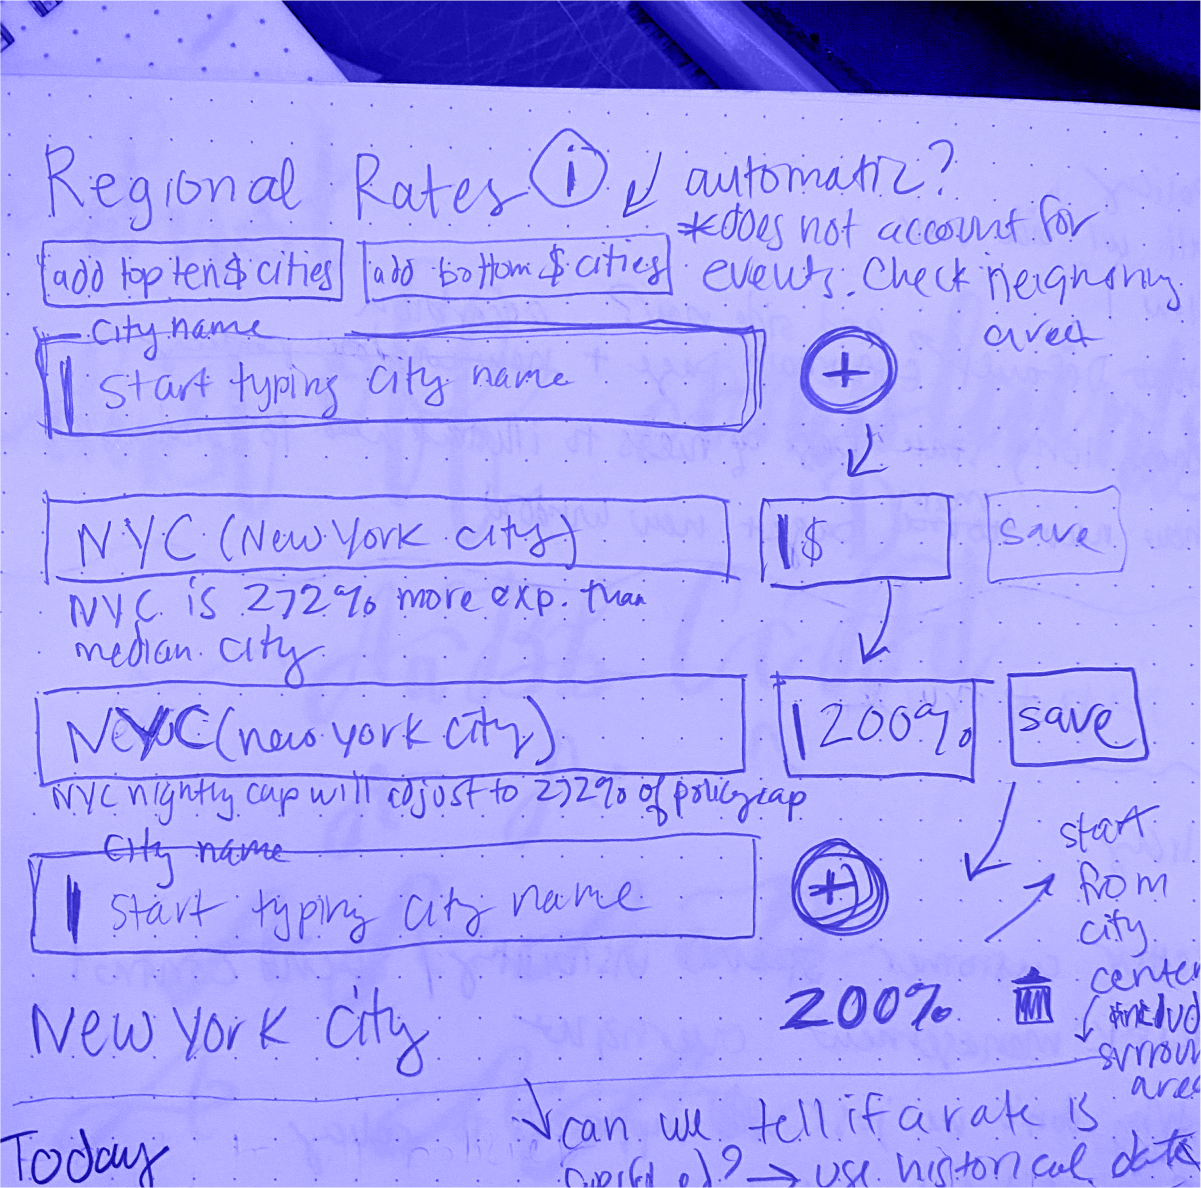 Regional Rates i
automatic?
*does not account for
events. Check neighboring
area
add top ten $ cities
add bottom $ cities
City name
Start typing city name
+
NYC (New York city)
$
save
NYC is 272% more exp. than
median city.
NYC (new york city)
200%
save
NYC nightly cap will adjust to 272% of policy cap
City name
Start typing city name
+
start
from
city
center
includ
surroun
area
New York City
200%
can we tell if a rate is
? → use historical data
Today